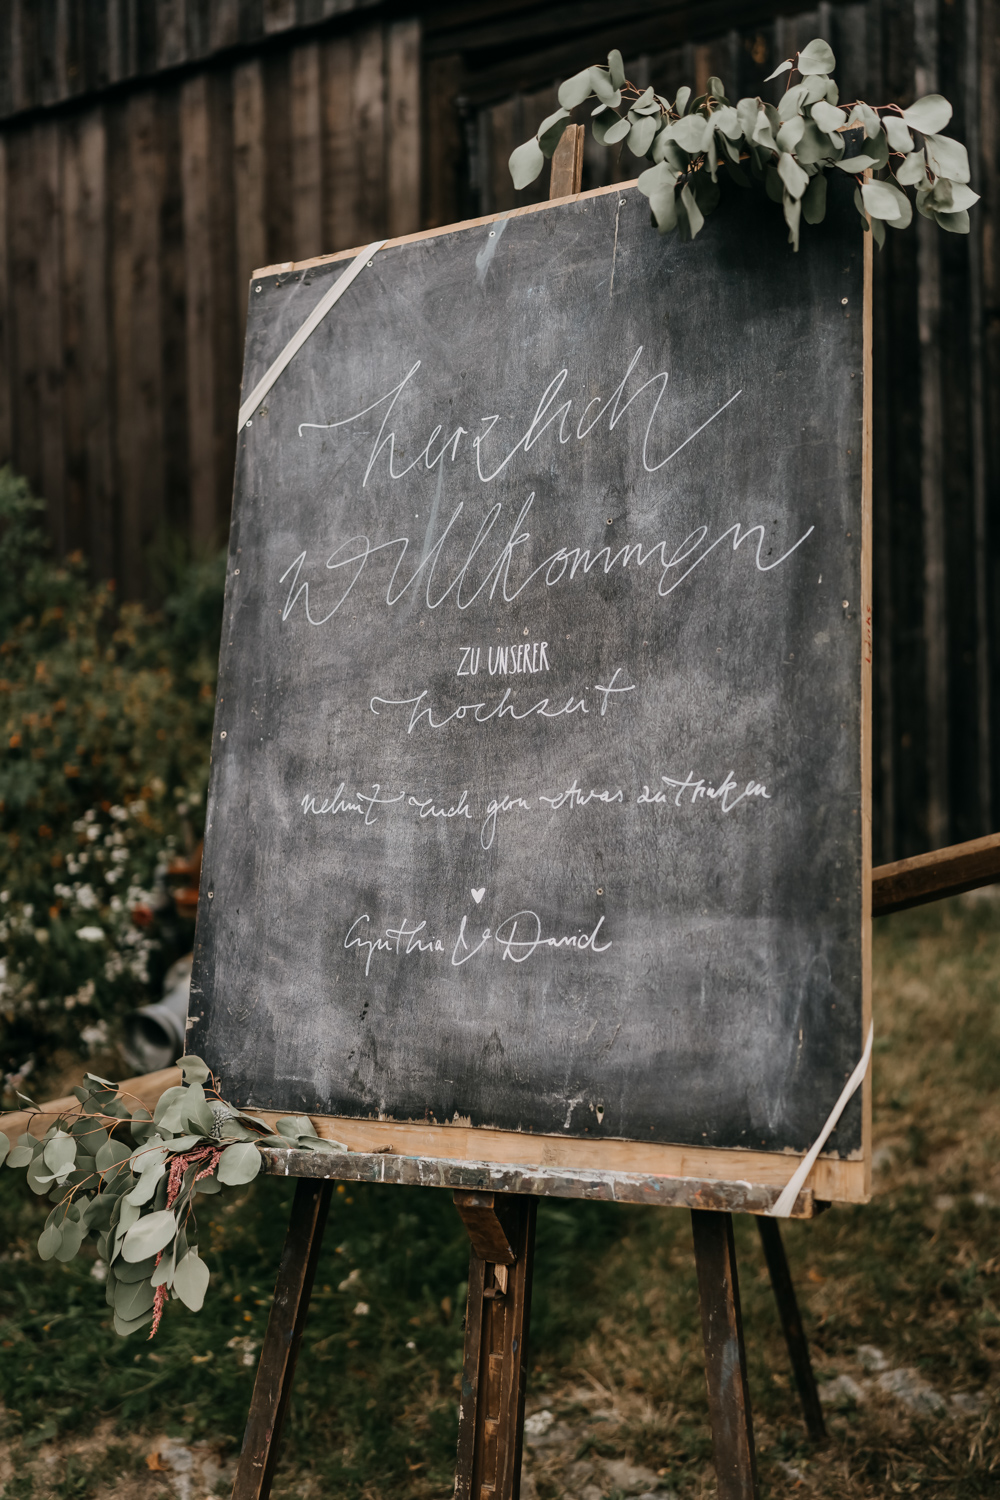 herzlich
willkommen
ZU UNSERER
hochzeit
nehmt euch gern etwas zu trinken
Cynthia & David